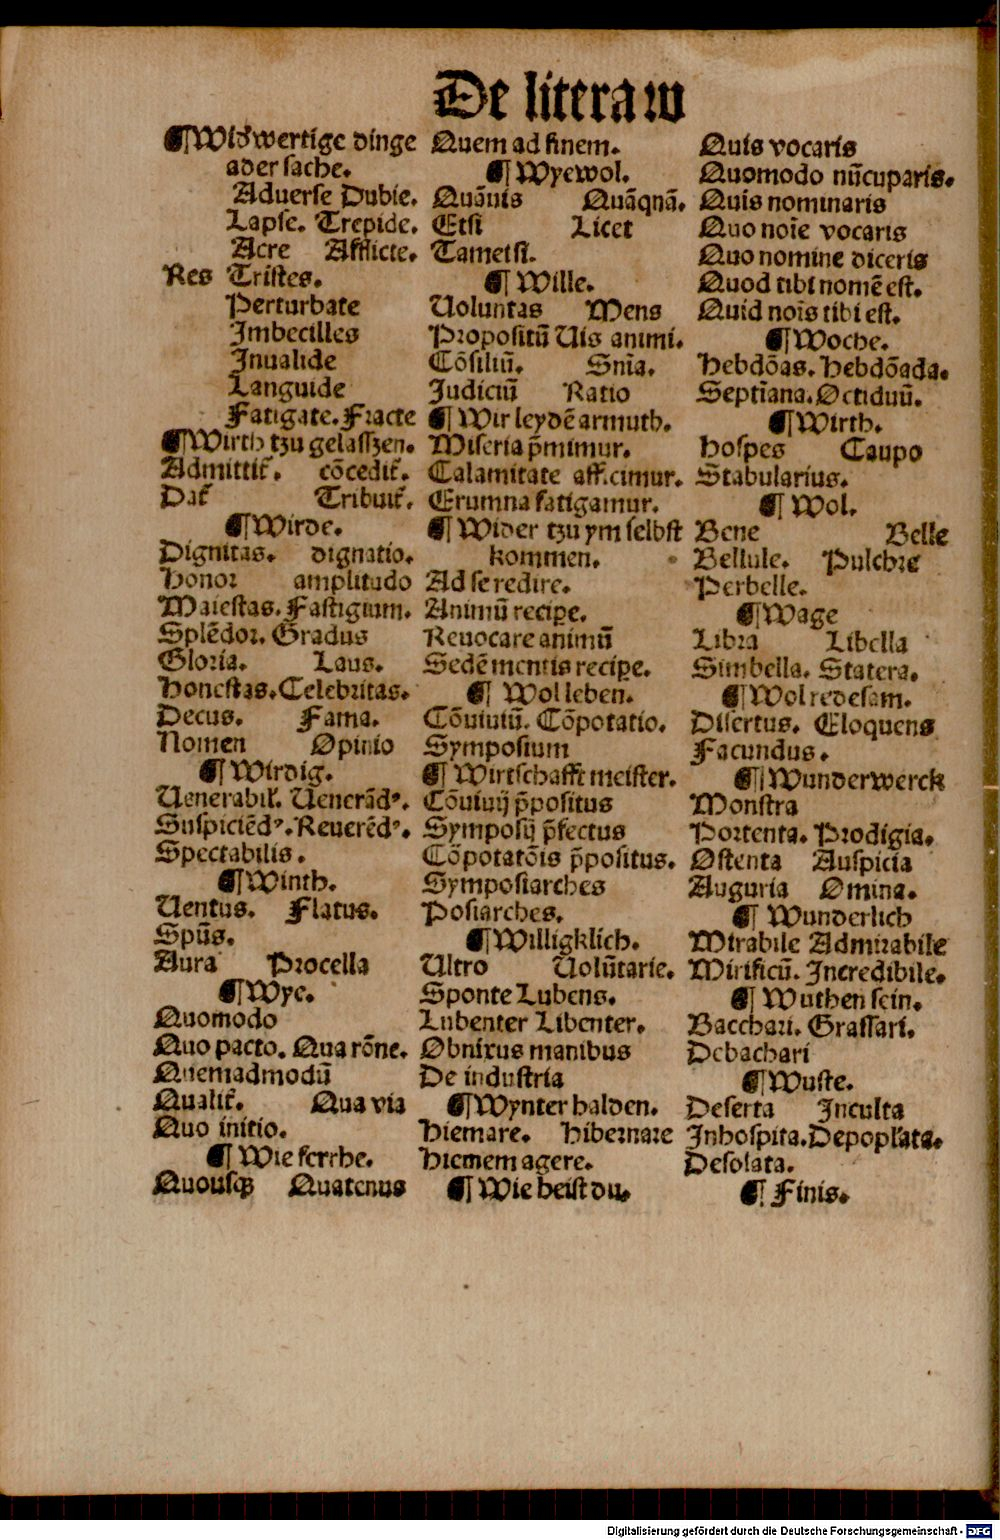 De litera w
¶ Widwertige dinge
ader sache.
Aduerse Dubie.
Lapse. Trepide.
Acre Afflicte.
Res Tristes.
Perturbate
Imbecilles
Inualide
Languide
Fatigate. Fracte
¶ Wirth tzu gelasszen.
Admittit᷑. cōcedit᷑.
Dat᷑ Tribuit᷑.
¶ Wirde.
Dignitas. dignatio.
Honor amplitudo
Maiestas. Fastigium.
Splēdor. Gradus
Gloria. Laus.
Honestas. Celebritas.
Decus. Fama.
Nomen Opinio
¶ Wirdig.
Uenerabil᷑. Uenerād⁹.
Suspiciēd⁹. Reuerēd⁹.
Spectabilis.
¶ Winth.
Uentus. Flatus.
Spūs.
Aura Procella
¶ Wye.
Quomodo
Quo pacto. Qua rōne.
Quemadmodū
Qualit᷑. Qua via
Quo initio.
¶ Wie ferrhe.
Quousqꝫ Quatenus
Quem ad finem.
¶ Wyewol.
Quāuis Quāqnā.
Etsi Licet
Tametsi.
¶ Wille.
Uoluntas Mens
Propositū Uis animi.
Cōsiliū. Snīa.
Iudiciū Ratio
¶ Wir leydē armuth.
Miseria p̄mimur.
Calamitate afficimur.
Erumna fatigamur.
¶ Wider tzu ym selbst
kommen.
Ad se redire.
Animū recipe.
Reuocare animū
Sedē mentis recipe.
¶ Wol leben.
Cōuiuiū. Cōpotatio.
Symposium
¶ Wirtschafft meister.
Cōuiuij p̄positus
Symposij p̄fectus
Cōpotatōis p̄positus.
Symposiarches
Posiarches.
¶ Willigklich.
Ultro Uolūtarie.
Sponte Lubens.
Lubenter Libenter.
Obnixus manibus
De industria
¶ Wynter halden.
Hiemare. Hibernare
Hiemem agere.
¶ Wie heist du.
Quis vocaris
Quomodo nūcuparis.
Quis nominaris
Quo noīe vocaris
Quo nomine diceris
Quod tibi nomē est.
Quid noīs tibi est.
¶ Woche.
Hebdōas. Hebdōada.
Septīana. Octiduū.
¶ Wirth.
Hospes Caupo
Stabularius.
¶ Wol.
Bene Belle
Bellule. Pulchre
Perbelle.
¶ Wage
Libra Libella
Simbella. Statera.
¶ Wol redesam.
Disertus. Eloquens
Facundus.
¶ Wunderwerck
Monstra
Portenta. Prodigia.
Ostenta Auspicia
Auguria Omina.
¶ Wunderlich
Mirabile Admirabile
Mirificū. Incredibile.
¶ Wuthen sein.
Bacchari. Grassari.
Debachari
¶ Wuste.
Deserta Inculta
Inhospita. Depopl̓ata.
Desolata.
¶ Finis.
Digitalisierung gefördert durch die Deutsche Forschungsgemeinschaft - DFG